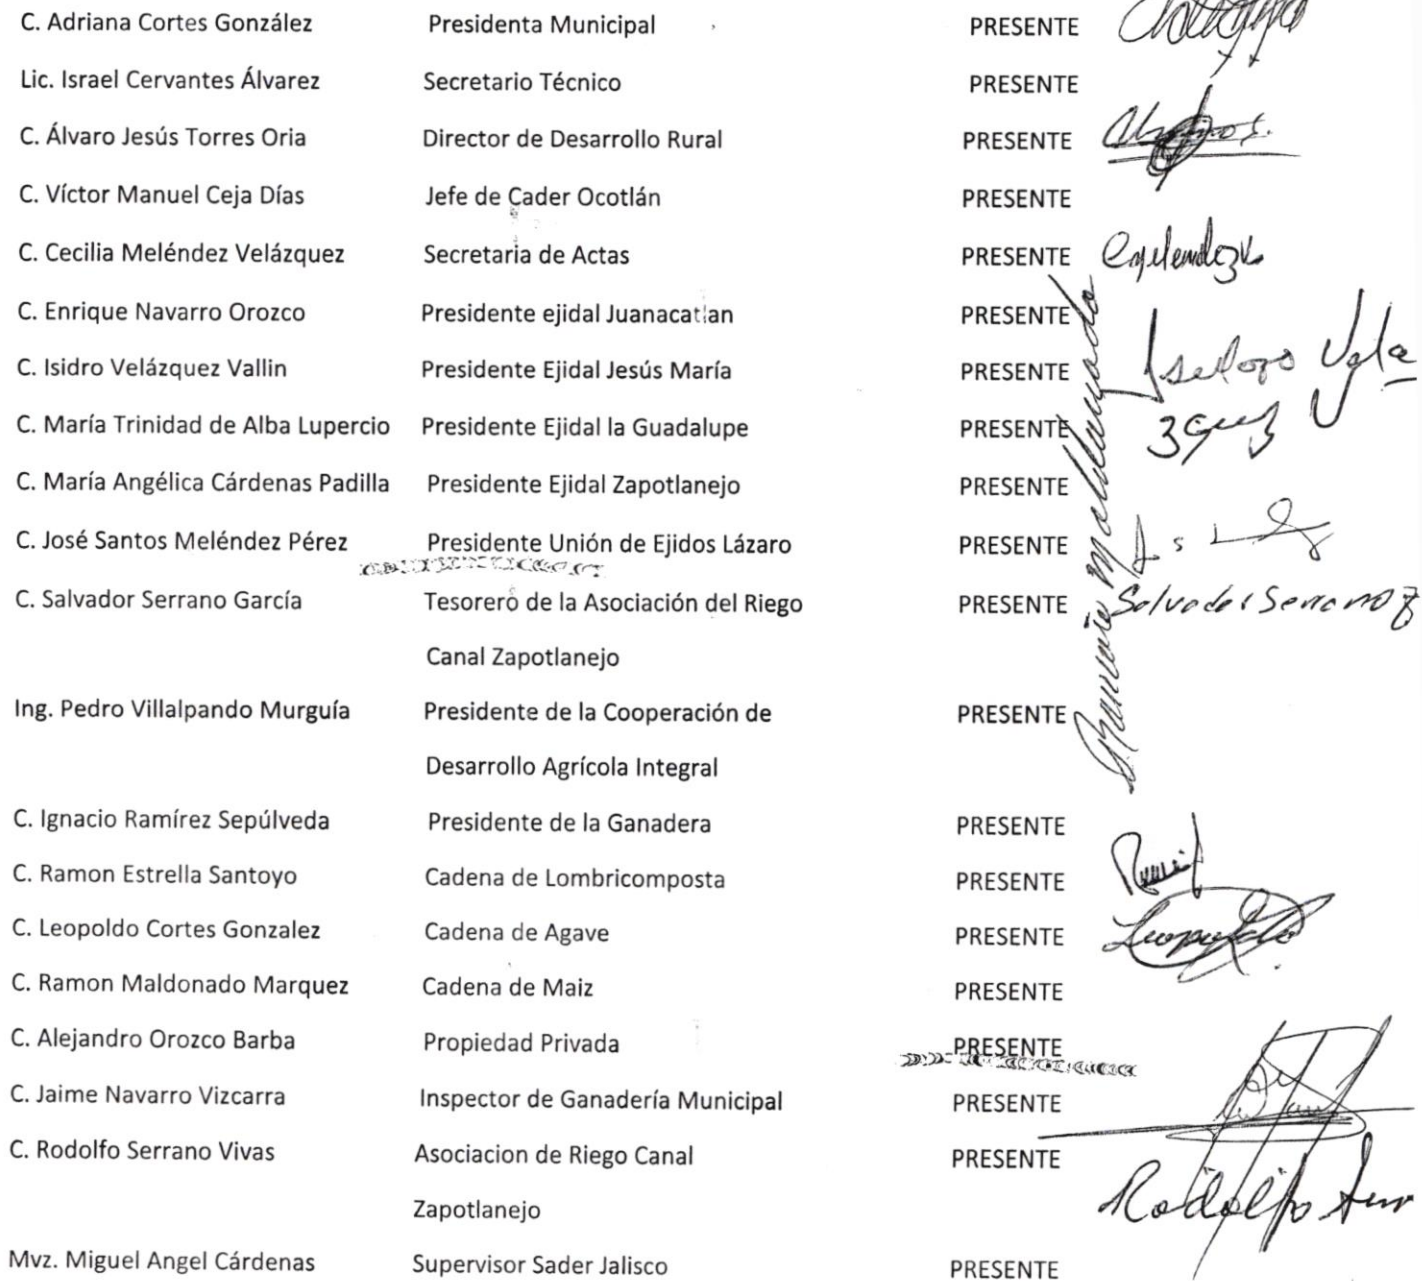 C. Adriana Cortes González Presidenta Municipal PRESENTE
Lic. Israel Cervantes Álvarez Secretario Técnico PRESENTE
C. Álvaro Jesús Torres Oria Director de Desarrollo Rural PRESENTE
C. Víctor Manuel Ceja Días Jefe de Cader Ocotlán PRESENTE
C. Cecilia Meléndez Velázquez Secretaria de Actas PRESENTE
C. Enrique Navarro Orozco Presidente ejidal Juanacatlan PRESENTE
C. Isidro Velázquez Vallin Presidente Ejidal Jesús María PRESENTE
C. María Trinidad de Alba Lupercio Presidente Ejidal la Guadalupe PRESENTE
C. María Angélica Cárdenas Padilla Presidente Ejidal Zapotlanejo PRESENTE
C. José Santos Meléndez Pérez Presidente Unión de Ejidos Lázaro PRESENTE
C. Salvador Serrano García Tesorero de la Asociación del Riego PRESENTE Salvador Serrano
Canal Zapotlanejo
Ing. Pedro Villalpando Murguía Presidente de la Cooperación de PRESENTE
Desarrollo Agrícola Integral
Maldonado
C. Ignacio Ramírez Sepúlveda Presidente de la Ganadera PRESENTE
C. Ramon Estrella Santoyo Cadena de Lombricomposta PRESENTE
C. Leopoldo Cortes Gonzalez Cadena de Agave PRESENTE Leopoldo
C. Ramon Maldonado Marquez Cadena de Maiz PRESENTE
C. Alejandro Orozco Barba Propiedad Privada PRESENTE
C. Jaime Navarro Vizcarra Inspector de Ganadería Municipal PRESENTE
C. Rodolfo Serrano Vivas Asociacion de Riego Canal PRESENTE
Zapotlanejo Rodolfo
Mvz. Miguel Angel Cárdenas Supervisor Sader Jalisco PRESENTE